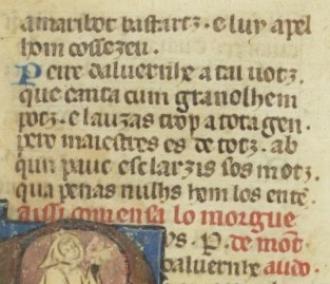 amaribot bastartz. e luy apel
hom cossezen.
Peire daluernhe a tal uotz.
que canta cum granolhem
potz. e lauzas trop a tota gen.
pero maiestres es de totz. ab
qun pauc esclarzis sos motz.
qua penas nulhs hom los enten.
aissi comensa lo morgue
ys. P. de mot
daluernhe audo.